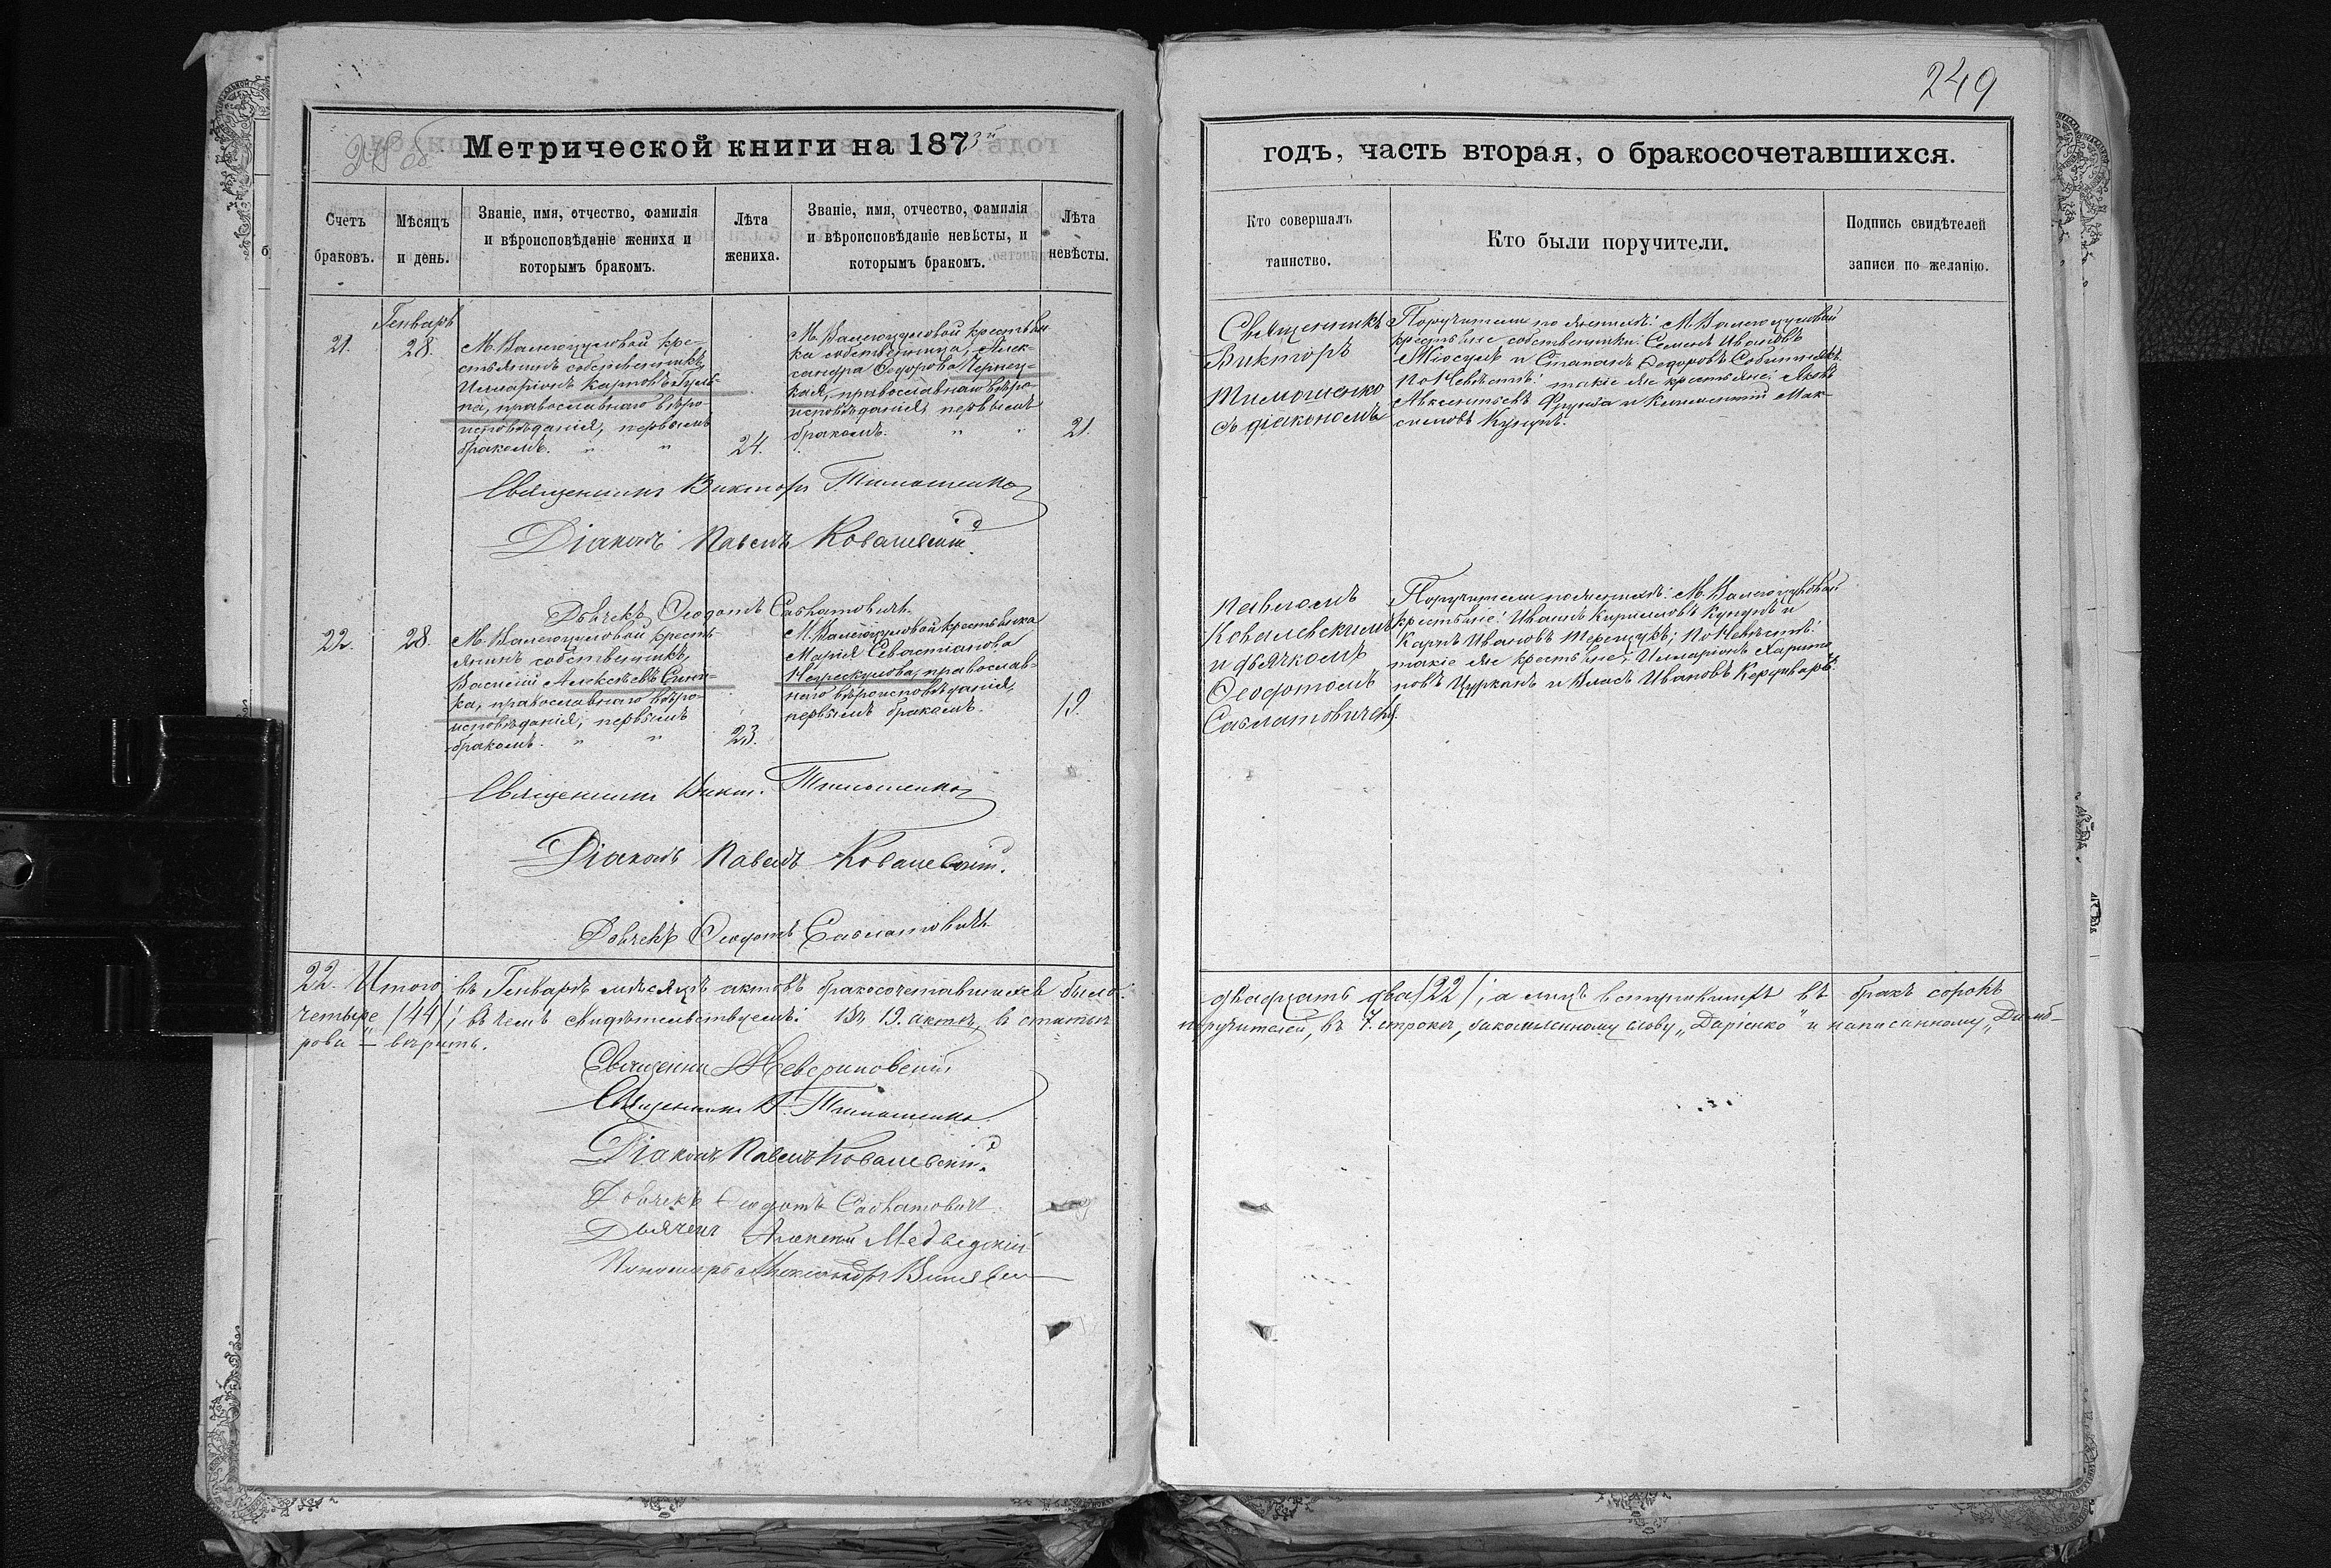 249
Метрической книги на 1873й
годъ, часть вторая, о бракосочетавшихся.
Счетъ браковъ.
Мѣсяцъ и день.
Званіе, имя, отчество, фамилія
и вѣроисповѣданіе жениха и
которымъ бракомъ.
Лѣта
жениха.
Званіе, имя, отчество, фамилія
и вѣроисповѣданіе невѣсты, и
которымъ бракомъ.
Лѣта
невѣсты.
Кто совершалъ
таинство.
Кто были поручители.
Подпись свидѣтелей
записи по желанію.
21.
Генваръ
28.
М. Валегоцуловой кре-
стьянинъ собственникъ,
Илларіонъ Карповъ
православнаго вѣро-
исповѣданія, первымъ
бракомъ. " "
24.
М. Валегоцуловой крестьян
ка собственница, Алек-
сандра Ѳедорова
православнаго вѣро-
исповѣданія, первымъ
бракомъ. " "
21.
Священникъ
Викторъ
Тимошенко
съ діакономъ
Поручители по женихѣ: М. Валегоцуловой
крестьяне собственники: Семенъ Ивановъ
и Стапанъ Ѳедоровъ
по Невѣстѣ: такіе же крестьяне: Яковъ
Авксентьевъ Фрунза и Климентій Мак-
симовъ
Священникъ Викторъ Тимошенко
Діаконъ Павелъ Ковалевскій.
Дьячекъ Ѳеодотъ Савлатовичъ
22.
28.
М. Валегоцуловой кресть-
янинъ собственникъ,
Василій Алексѣевъ
православнаго вѣро-
исповѣданія, первымъ
бракомъ. " "
23.
М. Валегоцуловой крестьянка
Марія Севастіанова
православ-
наго вѣроисповѣданія,
первымъ бракомъ.
19.
Павломъ
Ковалевскимъ
и дьячкомъ
Ѳеодотомъ
Савлатовичемъ.
Поручители по женихѣ: М. Валегоцуловой
крестьяне: Иванъ Кирилловъ и
Карпъ Ивановъ Терещукъ; по Невѣстѣ:
такіе же крестьяне: Илларіонъ Харито
новъ Цурканъ и Власъ Ивановъ
Священникъ Викт. Тимошенко
Діаконъ Павелъ Ковалевскій.
Дьячекъ Ѳеодотъ Савлатовичъ
22. Итого въ Генварѣ мѣсяцѣ актовъ бракосочетавшихся было:
двадцать два /22/; а лицъ вступившихъ въ бракъ сорокъ
четыре /44/; въ чемъ свидѣтельствуемъ: Въ 19. актѣ, в статьи
поручителей, въ 7. строкѣ, слову „Даріенко" и написанному
верить.
Священникъ
Священникъ В. Тимошенко.
Діаконъ Павелъ Ковалевскій.
Дьячекъ Ѳеодотъ Савлатовичъ.
Дьячекъ Алексѣй Медведскій
Пономарь Александръ